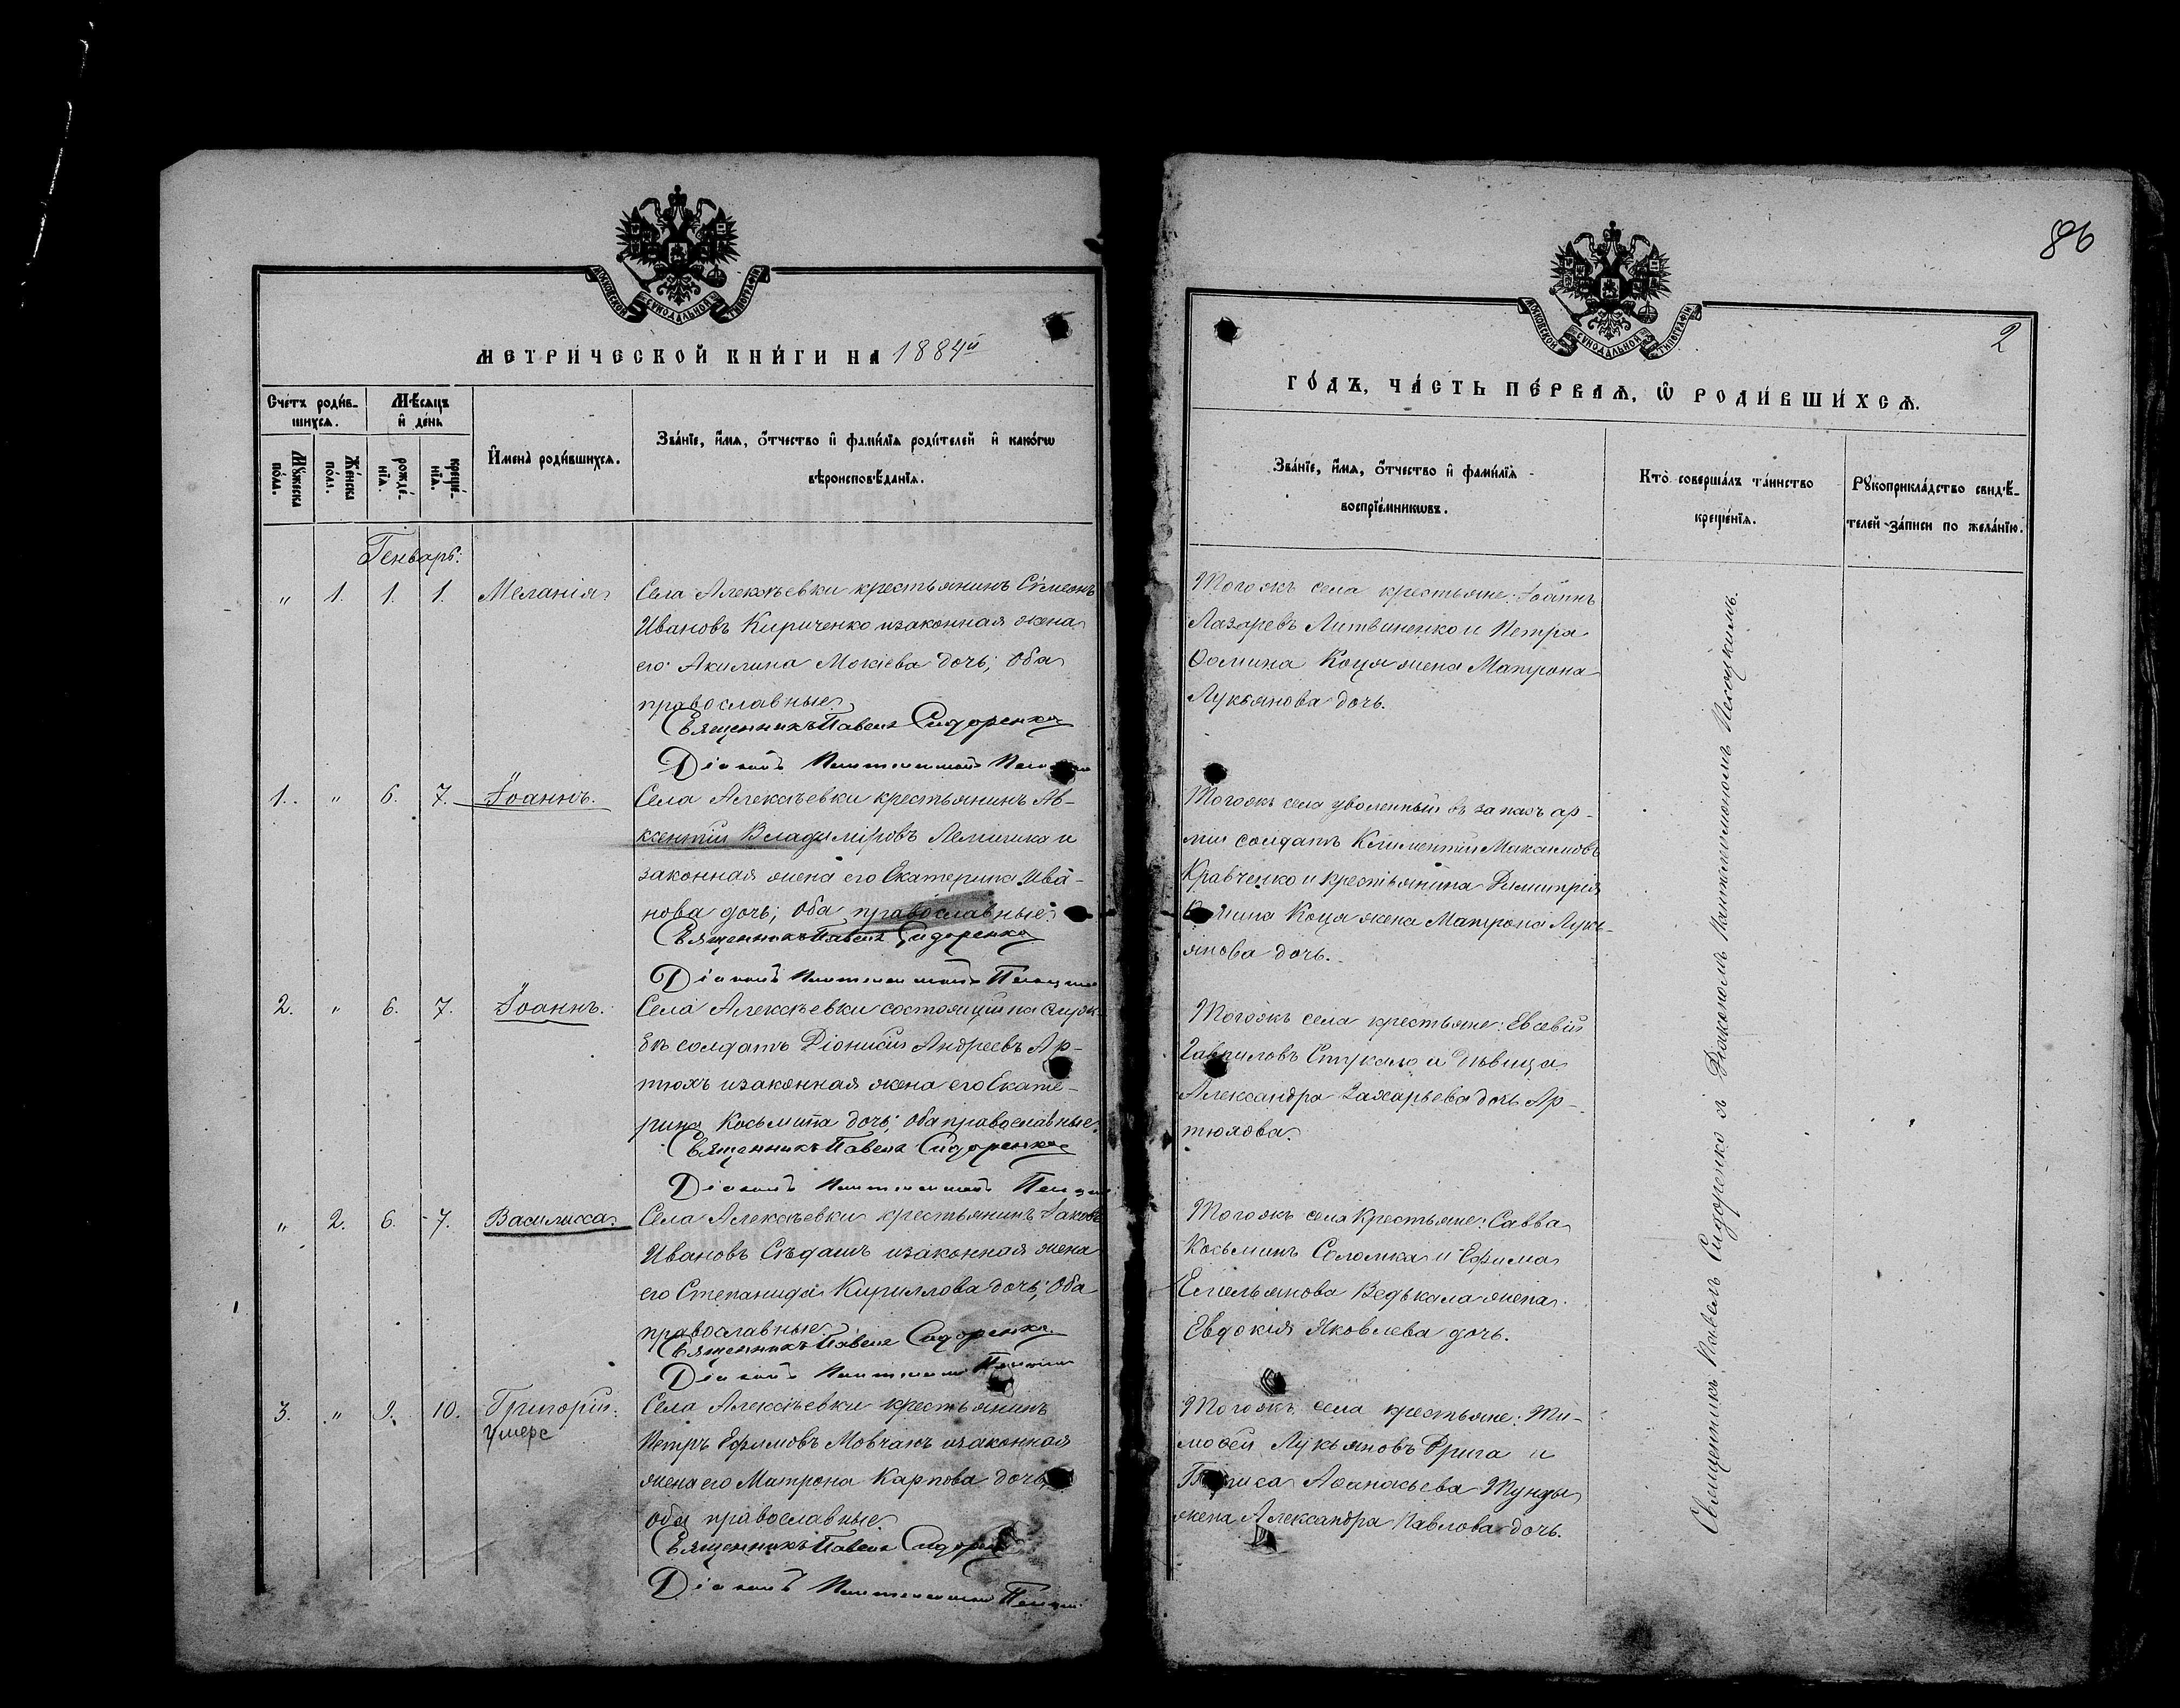 86
МОСКОВСКОЙ СѴНОДАЛЬНОЙ ТИПОГРАФІИ
МЕТРИЧЕСКОЙ КНИГИ НА 1884й
Счетъ родив-
шихся.
Мѣсяцъ
и день
Мужеска
пола.
Женска
пола.
рожде-
нія.
креще-
нія.
Имена родившихся.
Званіе, имя, отчество и фамилія родителей и какогѡ
вѣроисповѣданія.
Генварь:
" 1. 1. 1. Меланія
Села Алексѣевки крестьянинъ Сѵмеонъ
Ивановъ Кириченко и законная жена
его Акилина Мокіева дочь; Оба
православные
Священникъ Павелъ Сидоренко
Діаконъ
1. " 6. 7. Іоаннъ.
Села Алексѣевки крестьянинъ Ав-
ксентій Владиміровъ Лемишка и
законная жена его Екатерина Ива-
нова дочь; Оба православные.
Священникъ Павелъ Сидоренко
Діаконъ
2. " 6. 7. Іоаннъ.
Села Алексѣевки состоящій на служ-
бѣ солдатъ Діонисій Андреевъ Ар-
тюхъ и законная жена его Екате-
рина Косьмина дочь; Оба православные.
Священникъ Павелъ Сидоренко
Діаконъ
" 2. 6. 7. Василисса.
Села Алексѣевки крестьянинъ Іаковъ
Ивановъ Сѣдашъ и законная жена
его Степанида Кириллова дочь; Оба
православные
Священникъ Павелъ Сидоренко
Діаконъ
3. " 9. 10. Григорій.
умере
Села Алексѣевки крестьянинъ
Петръ Ефимовъ Мовчанъ и законная
жена его Матрона Карпова дочь;
Оба православные.
Священникъ Павелъ Сидоренко
Діаконъ
МОСКОВСКОЙ СѴНОДАЛЬНОЙ ТИПОГРАФІИ
2
ГОДЪ, ЧАСТЬ ПЕРВАЯ, Ѡ РОДИВШИХСЯ.
Званіе, имя, отчество и фамилія
воспріемниковъ.
Кто совершалъ таинство
крещенія.
Рукоприкладство свидѣ-
телей записи по желанію.
Тогожъ села крестьяне: Іоаннъ
Лазаревъ Литвиненко и Петра
Ѳомина Коця жена Матрона
Лукьянова дочь.
Тогожъ села уволенный въ запасъ ар-
міи солдатъ Климентій Максимовъ
Кравченко и крестьянина Димитрія
Коця жена Матрона Лукь-
янова дочь.
Тогожъ села крестьяне: Евсевій
Гавриловъ Стукало и дѣвица
Александра Захарьева дочь Ар-
тюхова.
Тогожъ села крестьяне: Савва
Косьминъ Соломка и Ефима
Емельянова Ведькала жена
Евдокія Яковлева дочь.
Тогожъ села крестьяне: Ти-
моѳей Лукьяновъ Дрига и
Бориса Аѳанасьева Тунды
жена Александра Павлова дочь.
Священникъ Павелъ Сидоренко съ Діакономъ Пантелеимономъ Песоцкимъ.